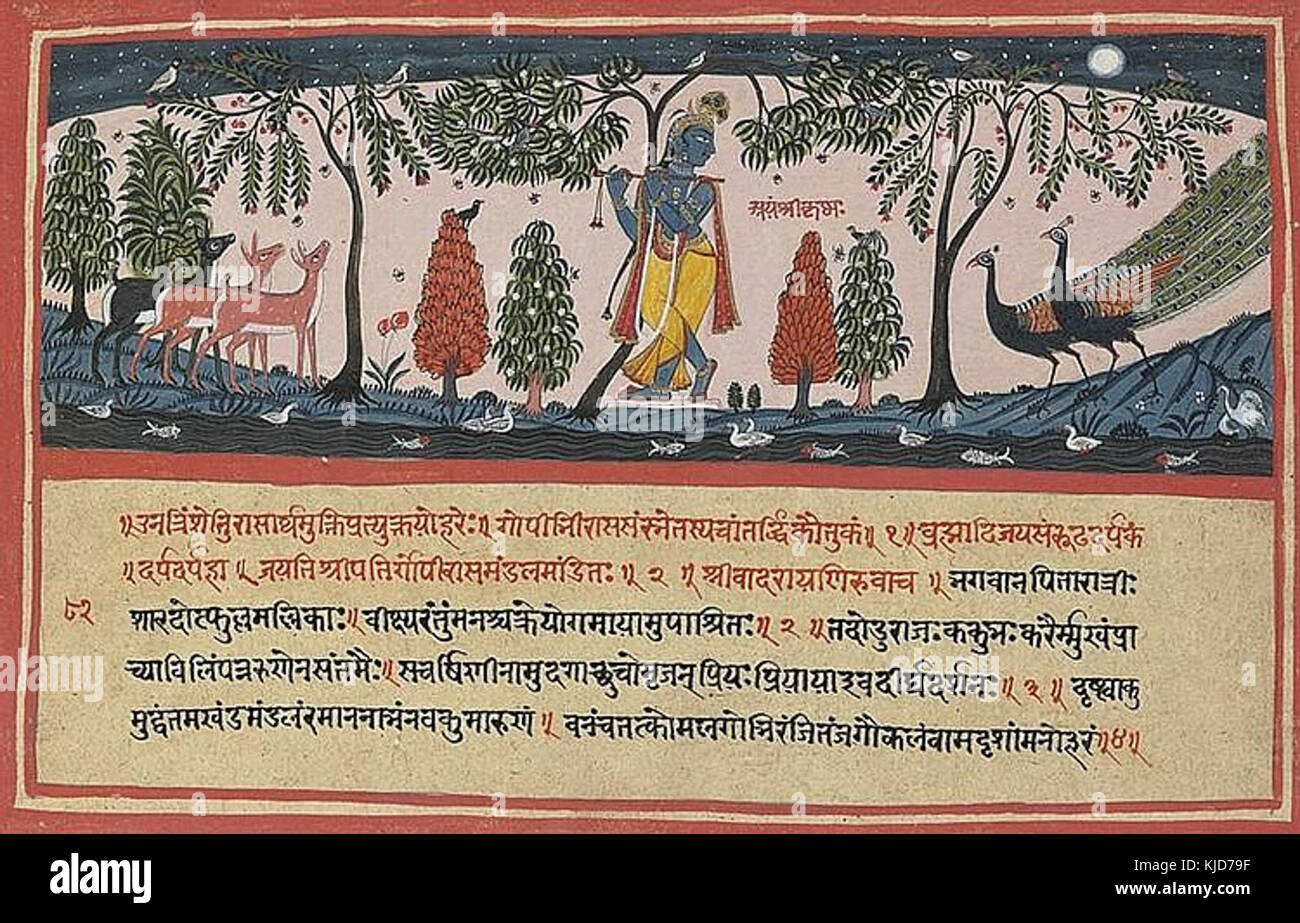 अयंश्रीकृष्णः
॥उनत्रिंशेतुिरासार्थमुक्तिप्रत्युक्तयोहरेः॥गोपीभीराससंरम्भेतस्यचांतर्द्धिकौतुकं॥१॥ब्रह्मादिजयसंरूढदर्पकं
॥दर्पदर्पहा॥जयतिश्रीपतिर्गोपीरासमंडलमंडितः॥२॥श्रीबादरायणिरुवाच॥भगवानपितारात्रीः
८२
शारदोत्फुल्लमल्लिकाः॥वीक्ष्यरंतुंमनश्चक्रेयोगमायामुपाश्रितः॥२॥तदोडुराजःककुभःकरैर्मुखंप्रा
च्याविलिंपन्नरुणेनसंतमैः॥सचर्षणीनामुदगाच्छुचोमृजन्प्रियःप्रियायाइवदीर्घदर्शनः॥३॥दृष्ट्वाकु
मुद्वंतमखंडमंडलंरमाननाभंनवकुमारुणं॥वनंचतत्कोमलगोभिरंजितंजगौकलंवामदृशांमनोहरं॥४॥
alamy
Image ID: KJD79F
www.alamy.com